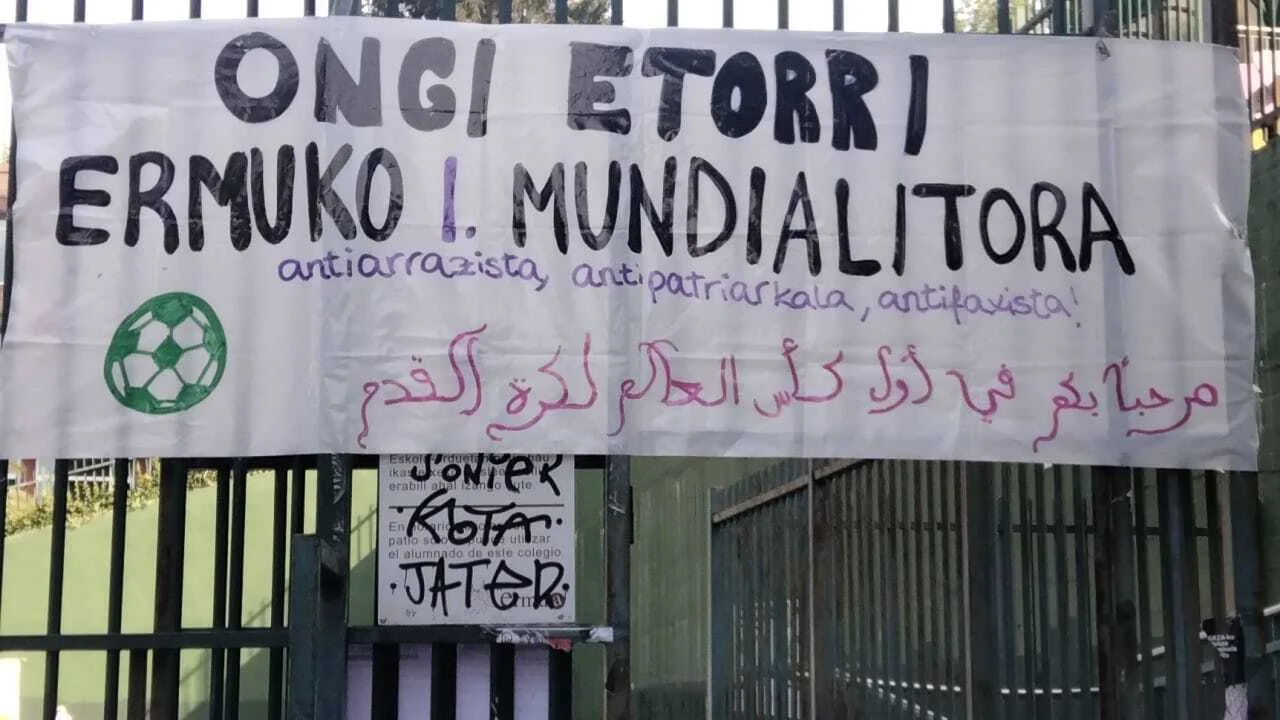 ONGI ETORRI
ERMUKO I. MUNDIALITORA
antiarrazista, antipatriarkala, antifaxista!
مرحباً بكم في أول كأس العالم لكرة القدم
erabili ahal izango dute
patio solo
el alumnado de este colegio
JATER